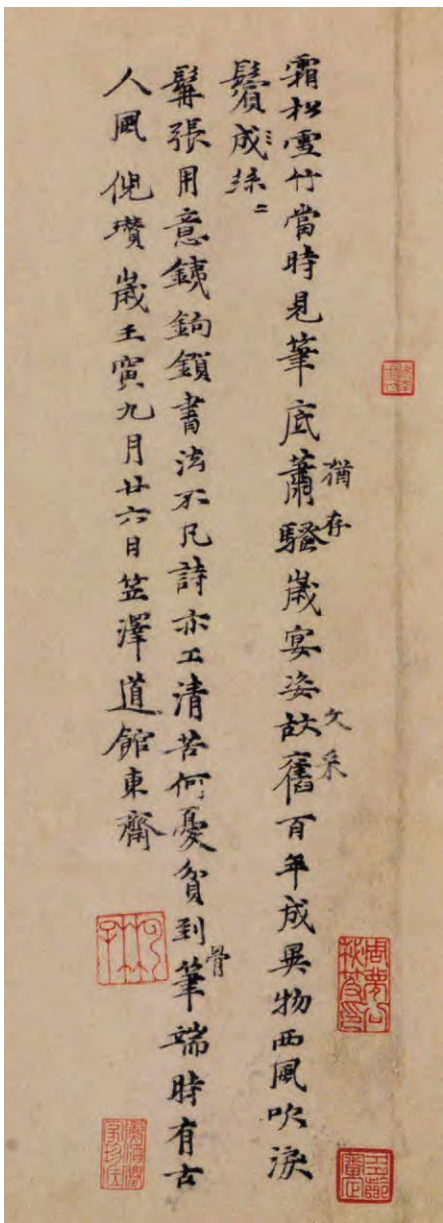 霜松雪竹當時見筆底蕭騷歲宴姿故舊百年成異物西風吹淚
猶存
文采
鬢成絲二
髯張用意銕鉤鎖書法不凡詩亦工清苦何憂貧到筆端時有古
骨
人風倪瓚歲壬寅九月廿六日笠澤道館東齋